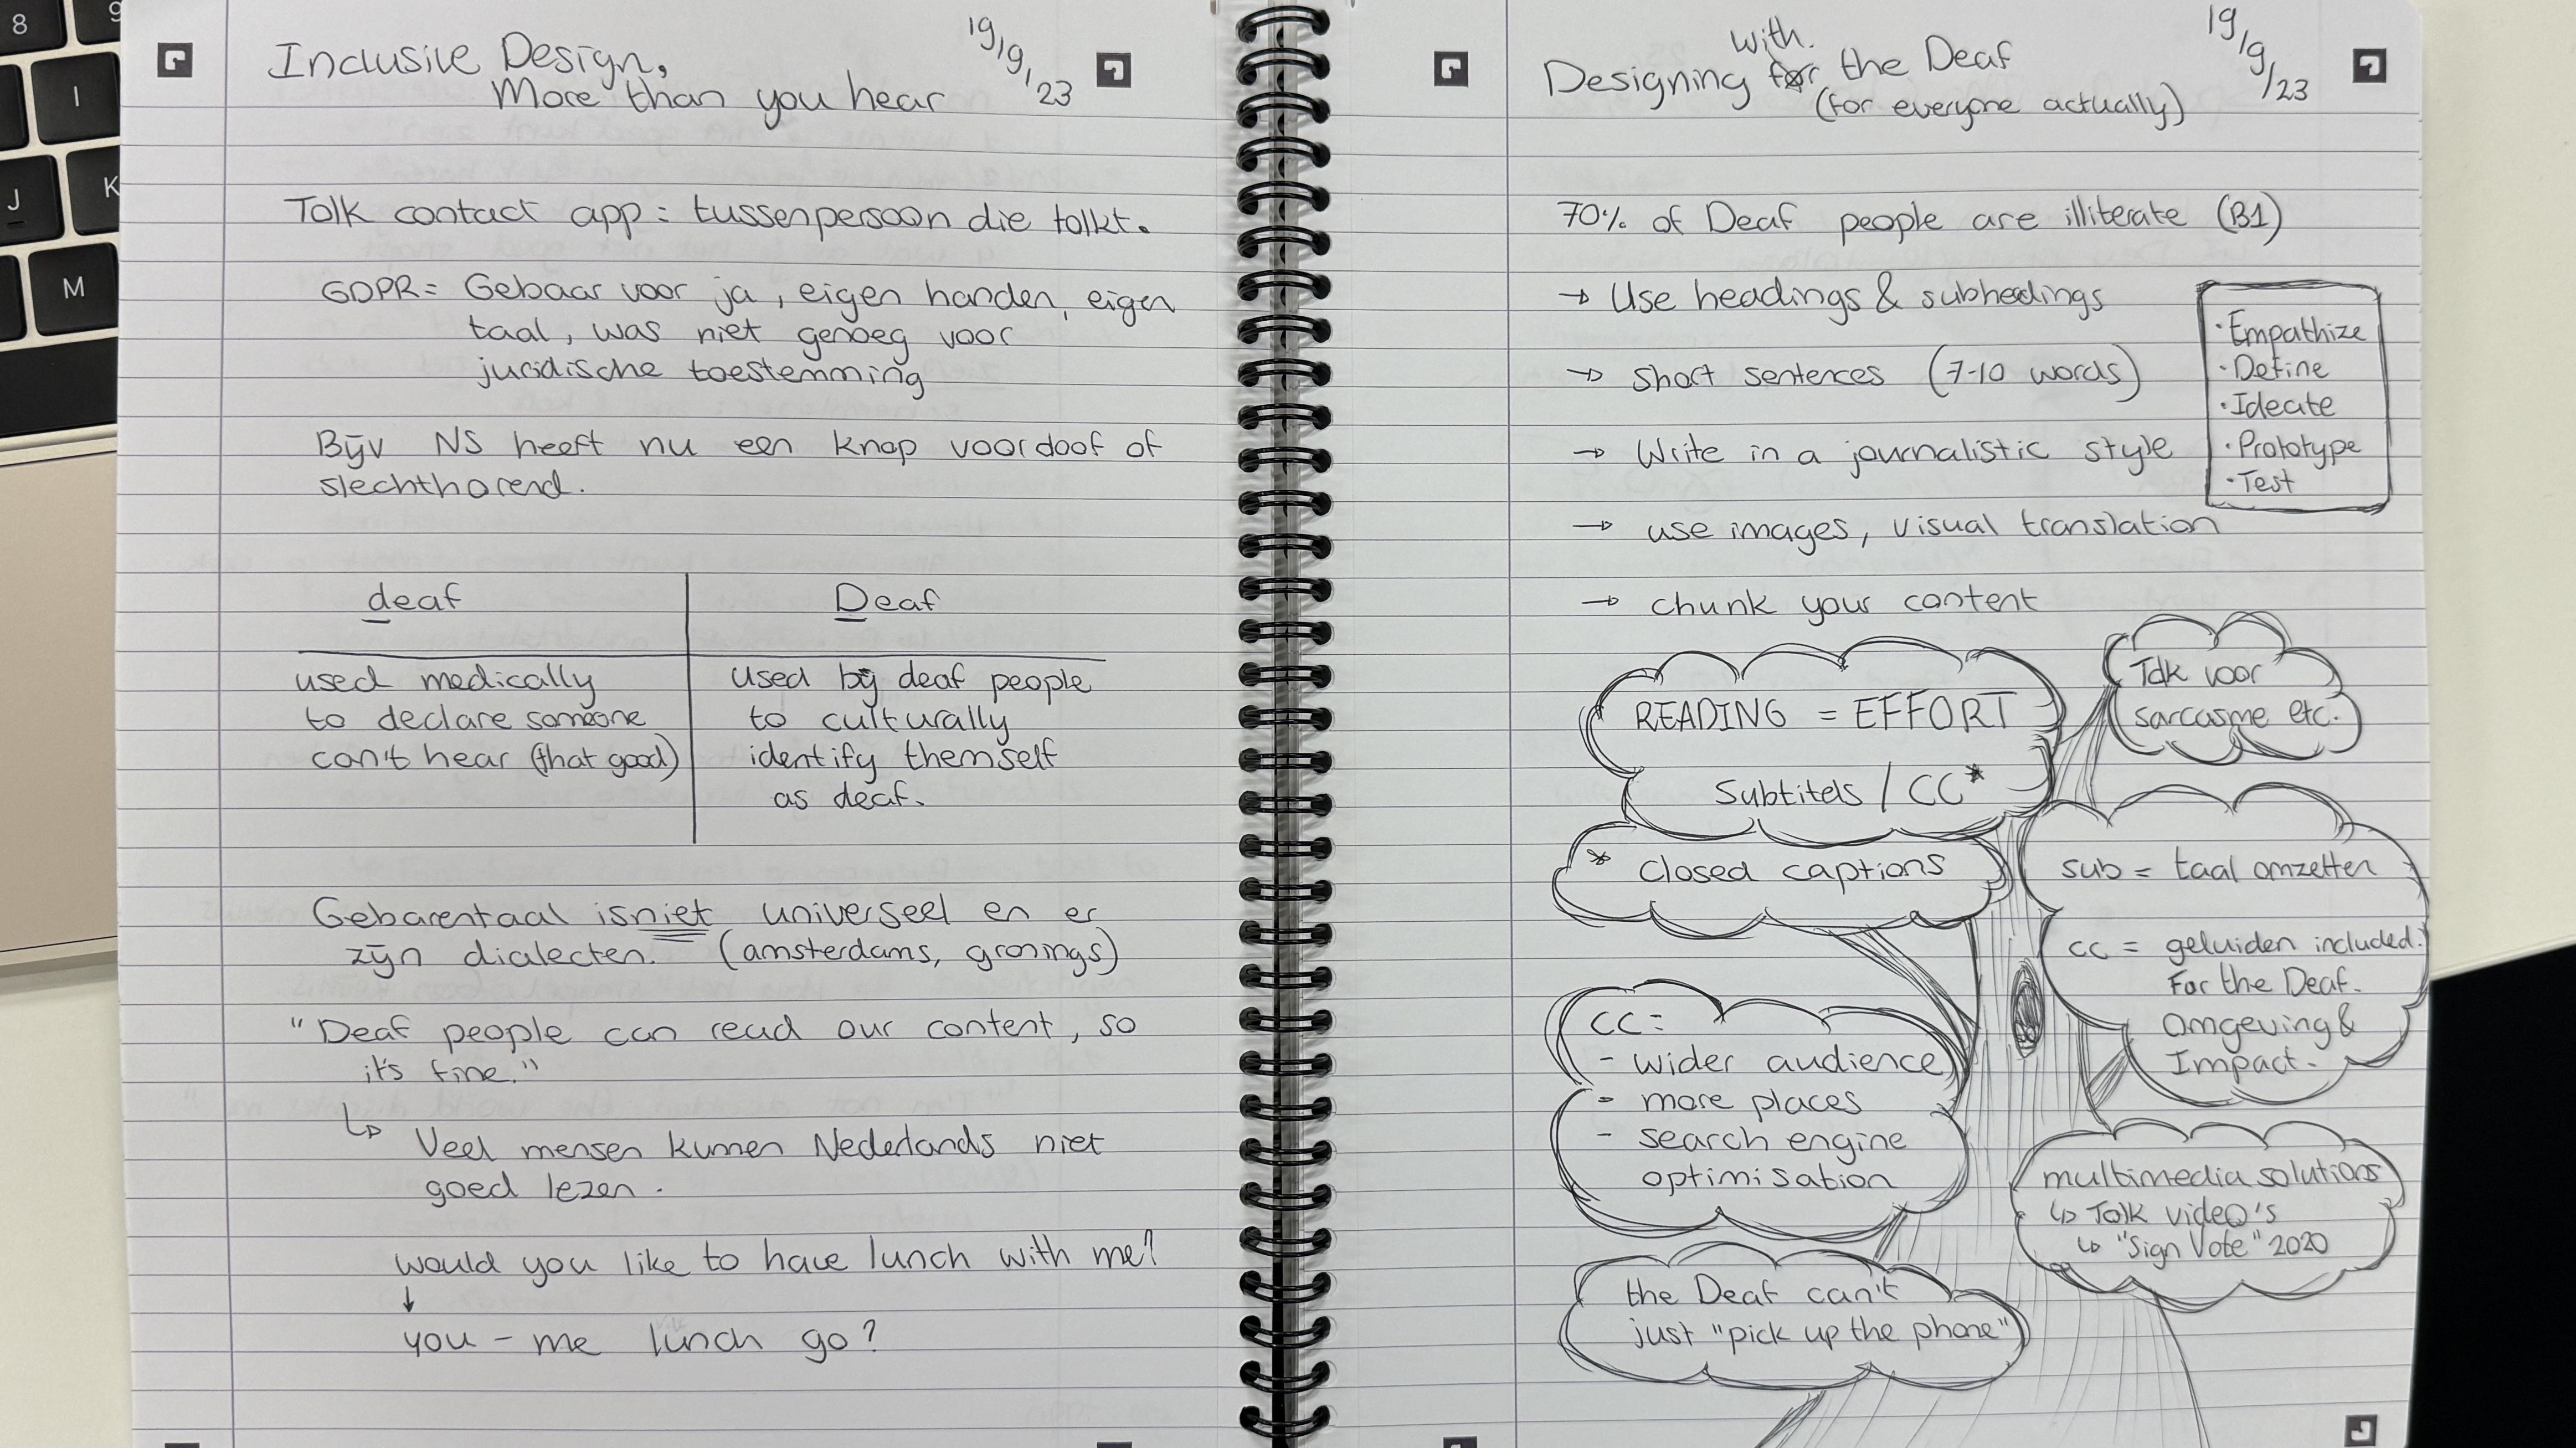 8
9
I
J
K
M
Inclusive Design,
More than you hear
19/9/23
Tolk contact app = tussenpersoon die tolkt.
GDPR = Gebaar voor ja, eigen handen, eigen
taal, was niet genoeg voor
juridische toestemming
Bijv NS heeft nu een knop voor doof of
slechthorend.
deaf
Deaf
used medically
to declare someone
can't hear (that good)
used by deaf people
to culturally
identify themself
as deaf.
Gebarentaal is niet universeel en er
zijn dialecten. (amsterdams, gronings)
"Deaf people can read our content, so
it's fine."
↳ Veel mensen kunnen Nederlands niet
goed lezen.
would you like to have lunch with me?
↓
you - me lunch go?
with
Designing for the Deaf
(for everyone actually)
19/9/23
70% of Deaf people are illiterate (B1)
→ Use headings & subheadings
→ Short sentences (7-10 words)
→ Write in a journalistic style
→ use images, visual translation
→ chunk your content
· Empathize
· Define
· Ideate
· Prototype
· Test
READING = EFFORT
Subtitels / CC*
* Closed captions
Tolk voor
sarcasme etc.
sub = taal omzetten
cc = geluiden included.
For the Deaf.
Omgeving &
Impact.
CC =
- wider audience
- more places
- search engine
optimisation
multimedia solutions
↳ Tolk video's
↳ "Sign Vote" 2020
the Deaf can't
just "pick up the phone"